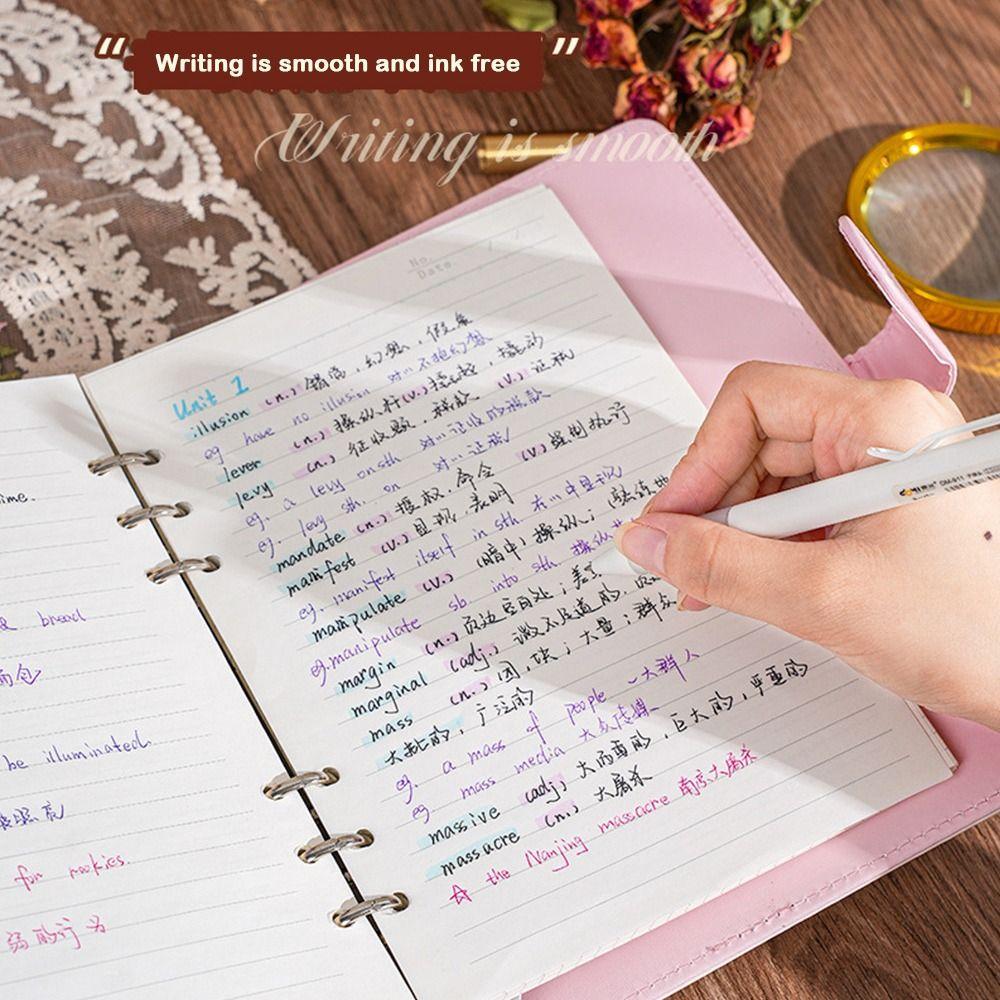 Writing is smooth and ink free
Writing is smooth
No.
Date.
Unit 1
illusion (n.) 错觉，幻想，假象
eg have no illusion 对……不抱幻想
lever (n.) 操纵杆 (v.) 撬动
levy (n.) 征收额，税款 (v.) 征税
eg. a levy on sth 对……征收的税款
eg. levy sth. on 对……征税
mandate (n.) 授权，命令 (v.) 强制执行
manifest (v.) 显现，表明
eg. manifest itself in sth 在……中显现
manipulate (v.) (暗中) 操纵；
eg. manipulate sb into sth. 操纵
margin (n.) 页边空白处；差
marginal (adj.) 微不足道的，
mass (n.) 团，块；大量；群众
大批的，广泛的
eg. a mass of people 一大群人
eg mass media 大众传媒
massive (adj.) 大而重的，巨大的，严重的
massacre (n.) 大屠杀
☆ the Nanjing massacre 南京大屠杀
ime.
bread
面包
be illuminated.
for rookies.
的行为